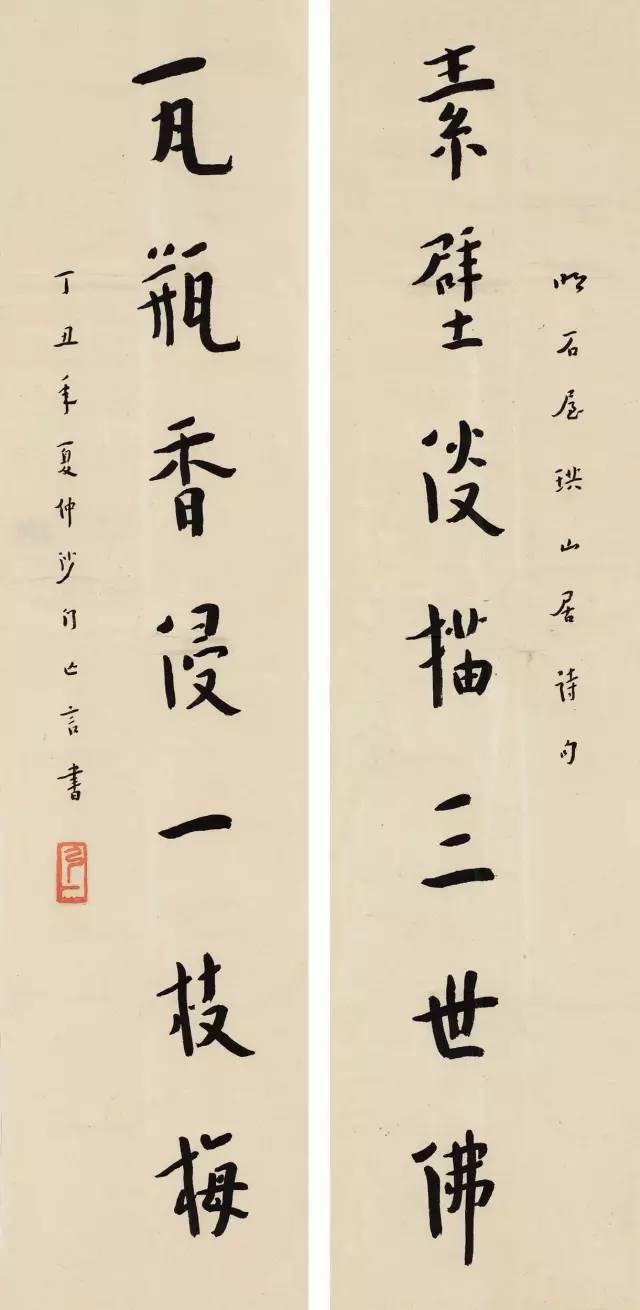 明石屋珙山居詩句
素壁淡描三世佛
瓦瓶香浸一枝梅
丁丑年夏仲沙門亡言書